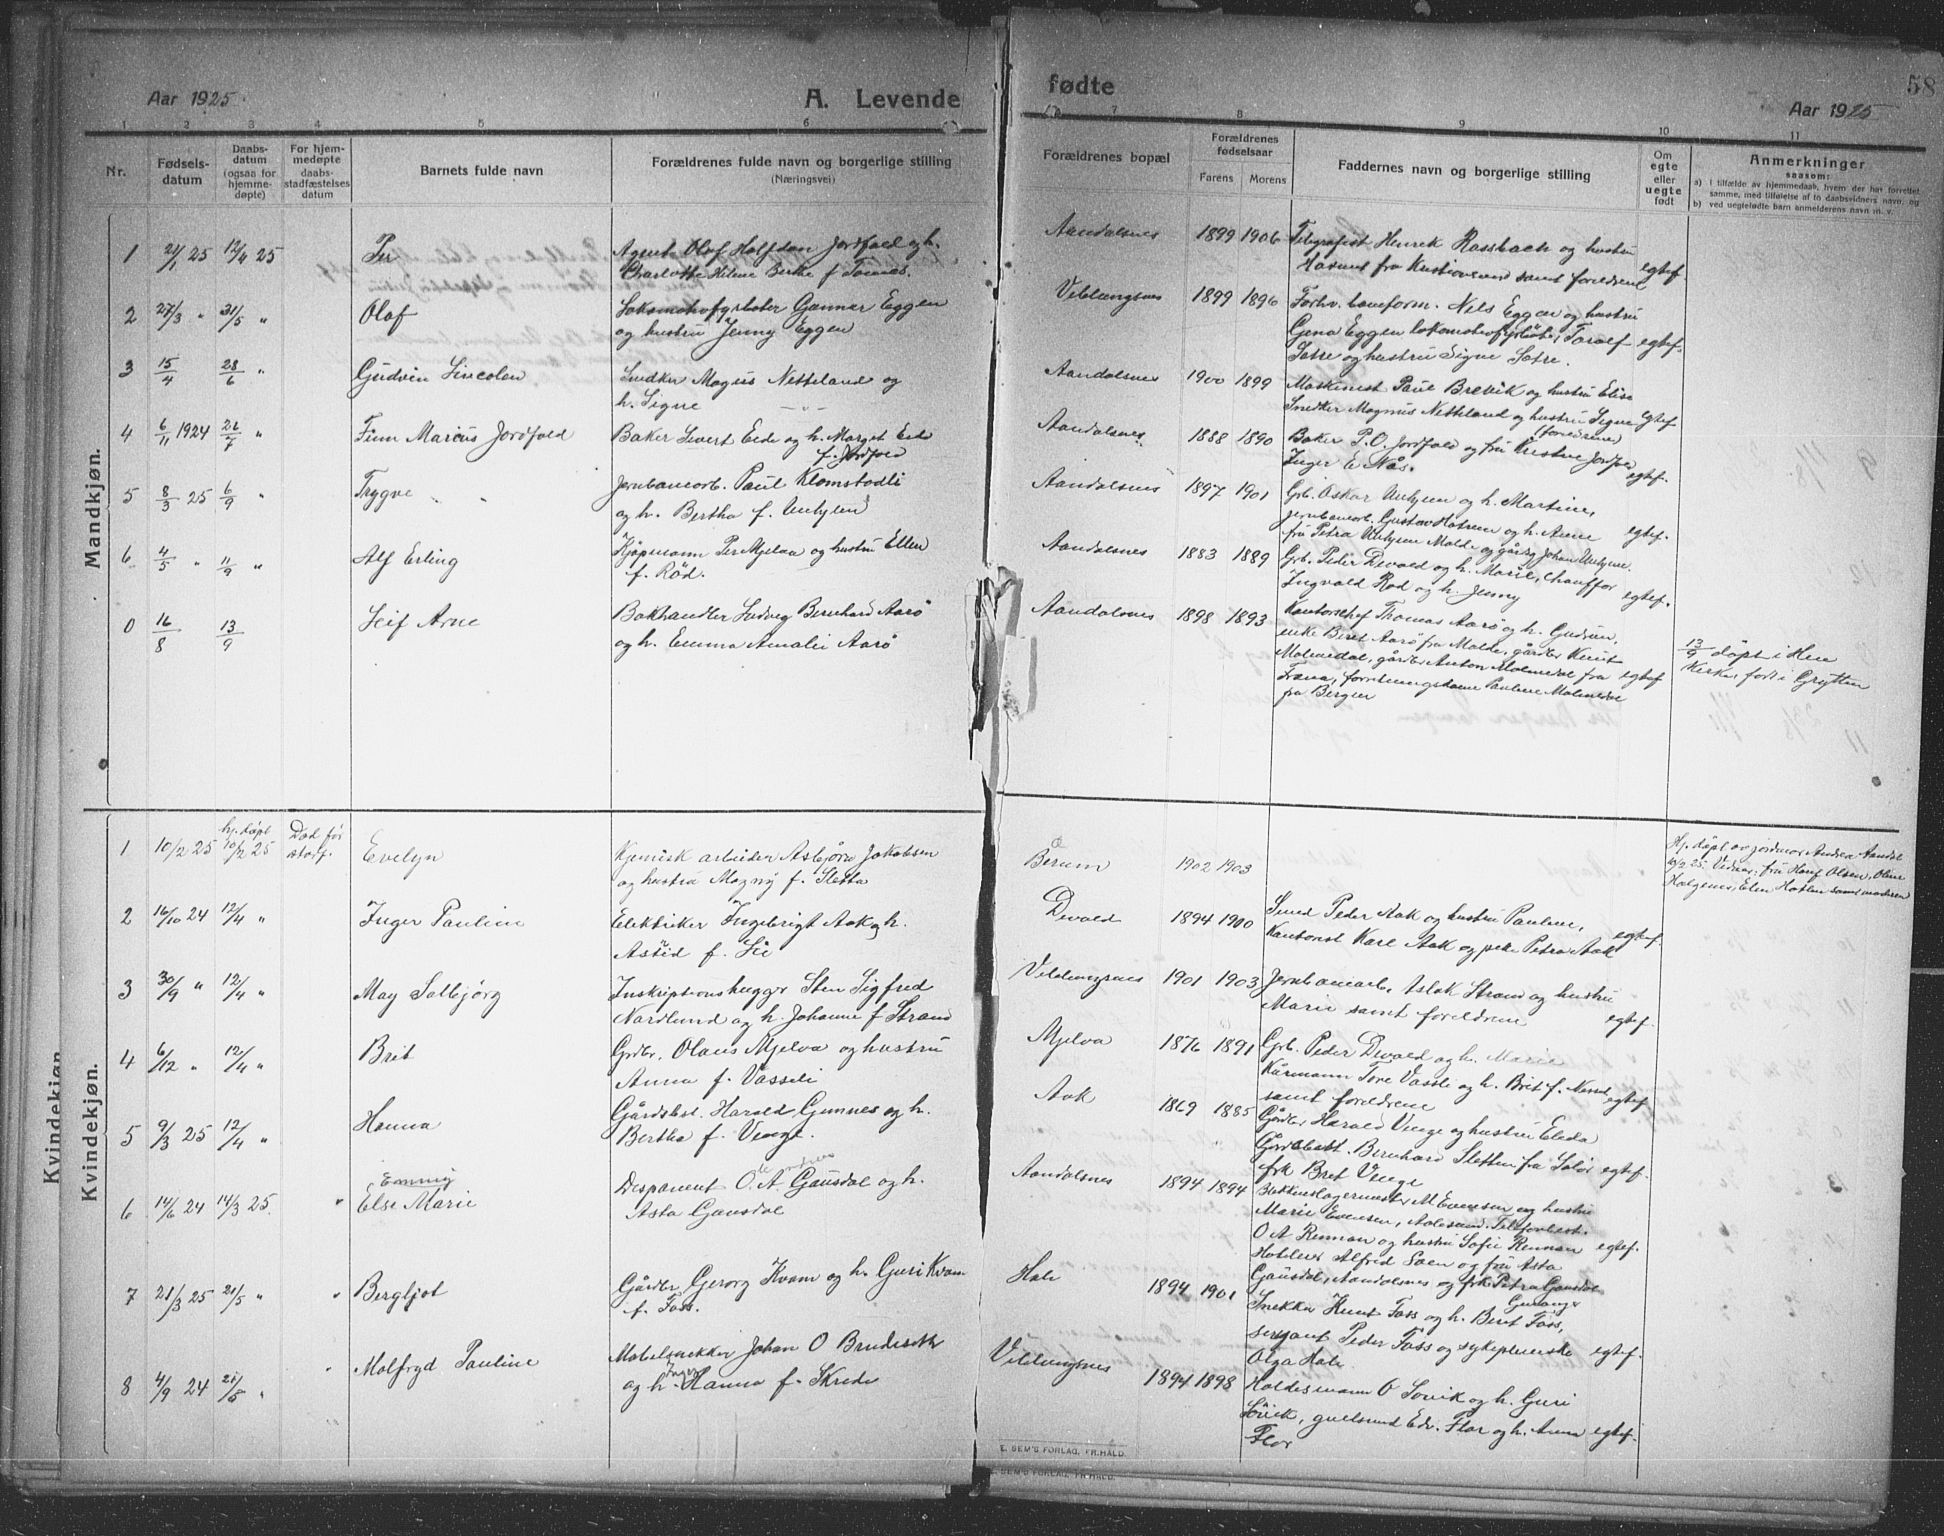 Aar 1925
A. Levende
fødte
58
Aar 1925
1 2 3 4 5 6
7 8 9 10 11
Nr.
Fødsels-
datum
Daabs-
datum
(ogsaa for
hjemme-
døpte)
For hjem-
medøpte
daabs-
stadfæstelses
datum
Barnets fulde navn
Forældrenes fulde navn og borgerlige stilling
(Næringsvei)
Forældrenes bopæl
Forældrenes
fødselsaar
Farens
Morens
Faddernes navn og borgerlige stilling
Om
egte
eller
uegte
født
Anmerkninger
saasom:
a) i tilfælde av hjemmedaab, hvem der har forrettet
samme, med tilføielse af to daabsvidners navn, og
b) ved uegtefødte barn anmelderens navn m. v.
Mandkjøn.
1 21/1 25 12/4 25 Per Agent Olaf Halfdan Jordfald og h.
Charlotte Helene Berthe f Tomas.
Aandalsnes 1899 1906 Telegrafist Henrik Rossbach og hustru
fra Kristiansund samt foreldrene egtef.
2 27/3 " 31/5 " Olaf Lokomotivfyrbøter Gunnar Eggen
og hustru Jenny Eggen
Veblungsnes 1899 1896 Forhv. baneform. Nils Eggen og hustru
Gina Eggen lokomotivfyrbøter Toralf egtef.
Sætre og hustru Signe Sætre.
3 15/4 28/6 " Gudvin Lincolen Snedker Magnus Netteland og
h. Signe —"—
Aandalsnes 1900 1899 Maskinist Paul Brevik og hustru Elise
Snedker Magnus Netteland og hustru Signe egtef
(foreldrene)
4 6/11 1924 26/7 " Finn Marcus Jordfald Baker Sivert Eide og h. Marget Eide
f. Jordfald
Aandalsnes 1888 1890 Baker P.O. Jordfald og fru Kristine Jordfald
Inger E Nås. egtef.
5 8/3 25 6/9 " Trygve Jernbanearb. Paul Klomstadli
og h. Bertha f. Unhjem
Aandalsnes 1897 1901 Grb. Oskar Unhjem og h. Martine,
jernbanearb. Gustav Hatrem og h. Anne egtef.
fru Petra Unhjem Molde og gårdbr Johan Unhjem.
6 4/5 " 11/9 " Alf Erling Kjøpmann Per Mjelva og hustru Ellen
f. Rød.
Aandalsnes 1883 1889 Grb. Peder Devold og h. Marie, chauffør
Ingvald Rød og h. Jenny egtef.
0 16/8 13/9 Leif Arne Bokhandler Ludvig Bernhard Aarø
og h. Emma Amalie Aarø
Aandalsnes 1898 1893 Kontorchef Thomas Aarø og h. Gudrun,
enke Beret Aarø fra Molde, gårdbr Knut
Malmedal, gårdbr Anton Malmedal fra egtef
Fræna, forretningsdame Pauline Malmedal
fra Bergen
13/9 døpt i Hen
Kirke, født i Grytten
Kvindekjøn
Kvindekjøn.
1 10/2 25 hj. døpt 10/2 25 Død før stadf. Evelyn Kjemisk arbeider Asbjørn Jakobsen
og hustru Magny f. Sletta
Berum 1902 1903
Hj. døpt av jordmor Andrea Aandal
10/2 25. Vidner: fru Olsen, Oline
Halgenes, Elen Hatlen samt moderen
2 16/10 24 12/4 " Inger Pauline Elektriker Ingebrigt Aak og h.
Astrid f. Lie
Devold 1894 1900 Smed Peder Aak og hustru Pauline, egtef.
Kontorist Karl Aak og pike Petra Aak
3 30/9 " 12/4 " May Solbjørg Inskriptionshugger Sten Sigfred
Nordlund og h. Johanne f Strand
Veblungsnes 1901 1903 Jernbanearb. Aslak Strand og hustru
Marie samt foreldrene egtef.
4 6/12 " 12/4 " Brit Grdbr. Olaus Mjelva og hustru
Anna f. Vasseli
Mjelva 1876 1891 Grb. Peder Devold og h. Marie
Kårmann Tore Vasseli og h. Brit f. Nesset egtef
samt foreldrene
5 9/3 25 12/4 " Hanna Gårdsbst. Harald Gumnes og h.
Bertha f. Venge.
Aak 1869 1885 Gårdbr Harald Venge og hustru Eleda
Gårdsbest. Bernhard Sletten fra Solør egtef.
frk Bret Venge
6 14/6 24 14/3 25 " Emmy
Else Marie Disponent O. A. Gausdal og h.
Asta Gausdal
Aandalsnes 1894 1894 Blikkenslagermester M Evensen og hustru
Marie Evensen, Aalesund. Telefonbest.
O A Rennan og hustru Sofie Rennan egtef.
Hoteleier Alfred Soen og fru Asta
Gausdal, Aandalsnes og frk Petra Gausdal
Geiranger
7 21/3 25 21/5 " " Bergljot Gårdbr Georg Kvam og h. Guri Kvam
f. Foss.
Hole 1894 1901 Snekker Knut Foss og h. Beret Foss,
sersjant Peder Foss og sykepleierske egtef.
Olga Hole
8 4/9 24 21/5 " Malfryd Pauline Møbelsnekker Johan O Brudeseth
og h. Inga Hanna f. Skrede
Veblungsnes 1894 1898 Haldesmann O Sovik og h. Guri
Sövik, gullsmed Edv. Flor og h. Anna egtef.
Flor
E. SEM'S FORLAG, FR.HALD.
E. SEM'S FORLAG, FR.HALD.